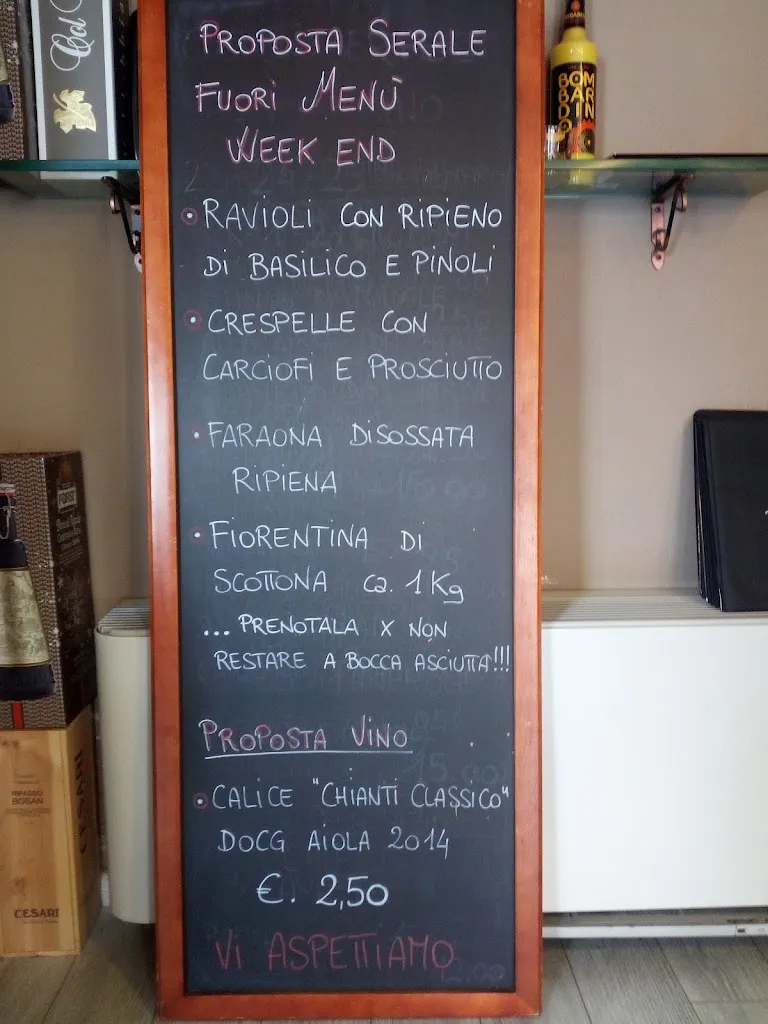 PROPOSTA SERALE
FUORI MENÙ
WEEK END
• RAVIOLI CON RIPIENO
DI BASILICO E PINOLI
• CRESPELLE CON
CARCIOFI E PROSCIUTTO
• FARAONA DISOSSATA
RIPIENA
• FIORENTINA DI
SCOTTONA ca. 1 Kg
... PRENOTALA X NON
RESTARE A BOCCA ASCIUTTA!!!
PROPOSTA VINO
• CALICE "CHIANTI CLASSICO"
DOCG AIOLA 2014
€. 2,50
VI ASPETTIAMO
BOM
BAR
DIN
RIPASSO
BOSAN
CESARI
CESARI